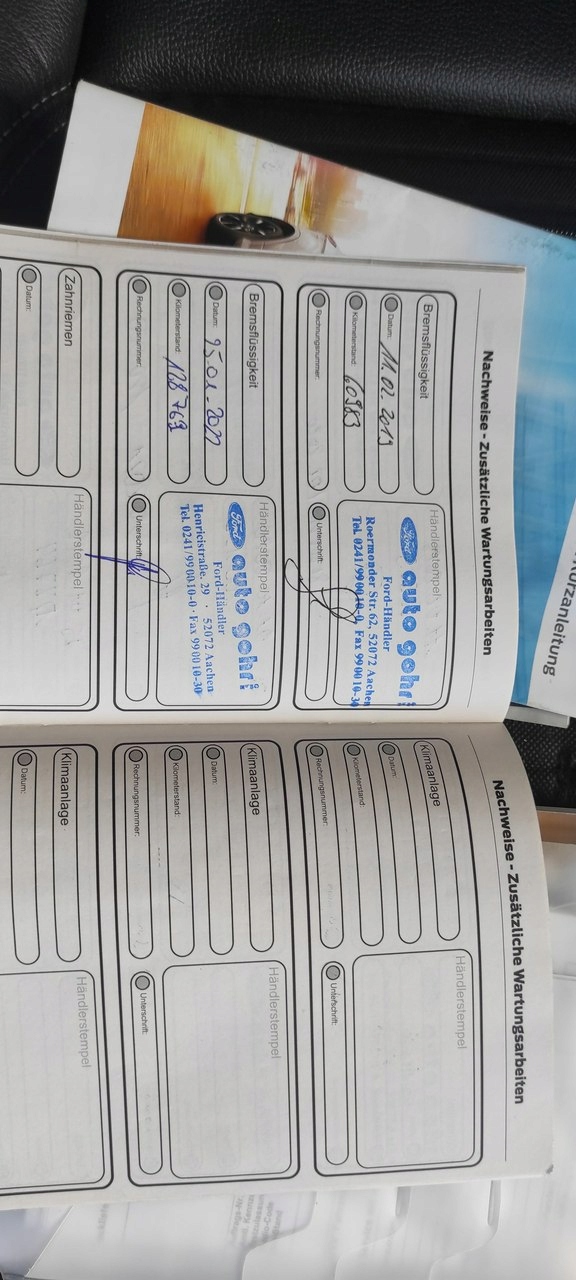 Kurzanleitung
Nachweise - Zusätzliche Wartungsarbeiten
Bremsflüssigkeit
Datum: 11.02.2019
Kilometerstand: 60983
Rechnungsnummer:
Händlerstempel
Ford auto gohr
Ford-Händler
Roermonder Str. 62, 52072 Aachen
Tel. 0241/990010-0, Fax 990010-30
Unterschrift:
Bremsflüssigkeit
Datum:
Kilometerstand: 128 769
Rechnungsnummer:
Händlerstempel
Ford auto gohr
Ford-Händler
Henricistraße. 29 · 52072 Aachen
Tel. 0241/990010-0 · Fax 990010-30
Unterschrift:
Zahnriemen
Datum:
Händlerstempel
Nachweise - Zusätzliche Wartungsarbeiten
Klimaanlage
Datum:
Kilometerstand:
Rechnungsnummer:
Händlerstempel
Unterschrift:
Klimaanlage
Datum:
Kilometerstand:
Rechnungsnummer:
Händlerstempel
Unterschrift:
Klimaanlage
Datum:
Händlerstempel